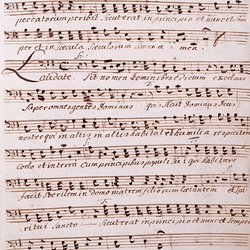 peccatorum peribit sicut erat in principio et nunc et sem
per et in sæcula sæculorum amen a men
Laudate. Sit nomen Domini benedictum excelsus
super omnes gentes Dominus quis sicut Dominus Deus
noster qui in altis in altis habitat et humilia respicit in
coelo et in terra Cum principibus populi sui qui habitare
facit sterilem in domo matrem filiorum lætantem et Spi
ritui Sancto Sicut erat in principio et nunc et semper